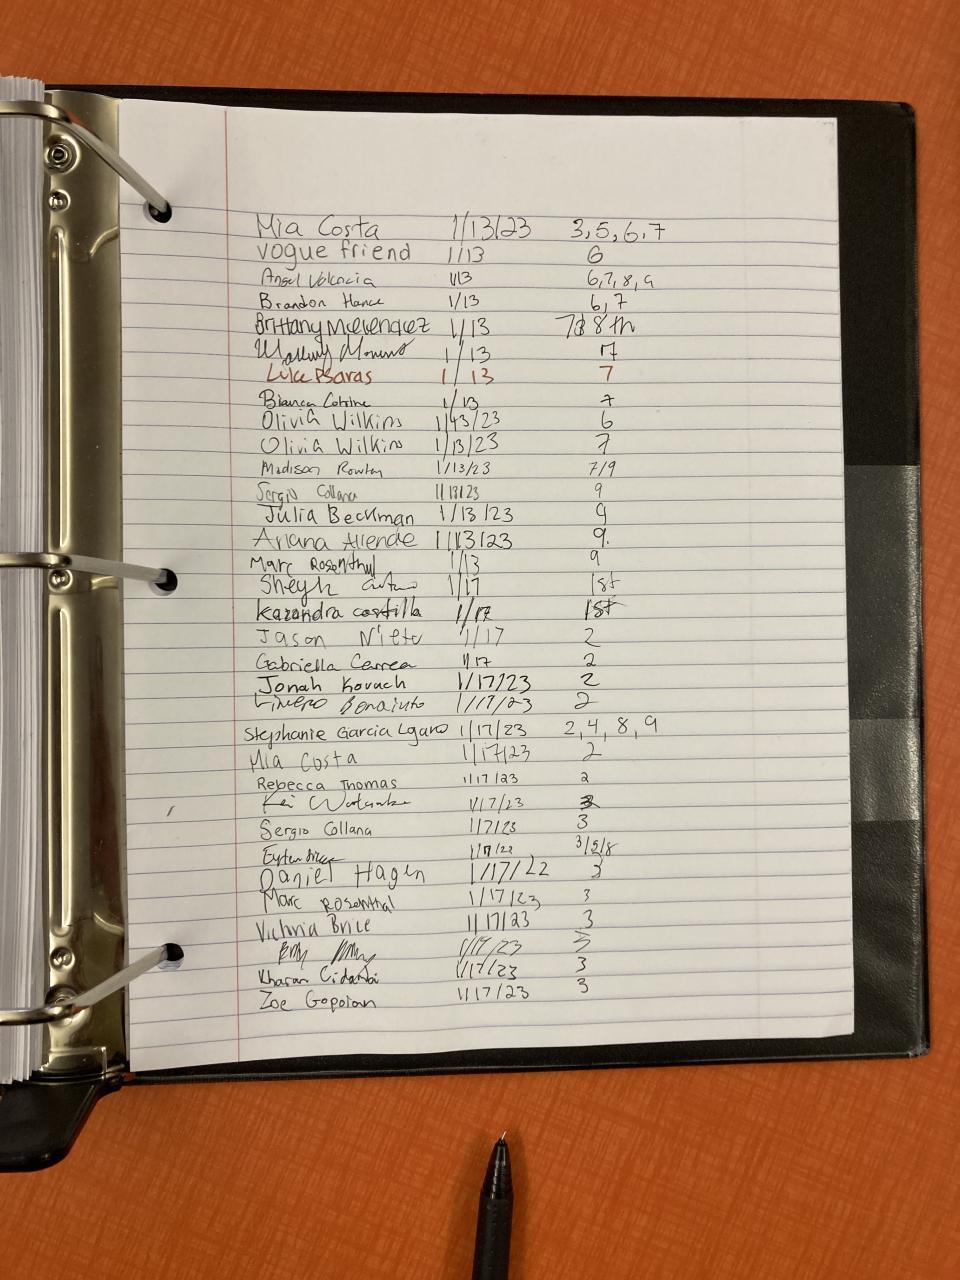 Mia Costa 1/13/23 3,5,6,7
vogue friend 1/13 6
Angel Valencia 1/13 6,7,8,9
Brandon Hance 1/13 6,7
Brittany 1/13 7&8th
1/13 7
Luke Psaras 1/13 7
Bianca 1/13 7
Olivia Wilkins 1/13/23 6
Olivia Wilkins 1/13/23 7
Madison Rowley 1/13/23 7/9
Sergio Collana 1/13/23 9
Julia Beckman 1/13/23 9
Ariana Allende 1/13/23 9.
Marc Rosenthal 1/13 9
Sheyk 1/17 1st
Kazandra costilla 1/17 1st
Jason Nieto 1/17 2
Gabriella Correa 1/17 2
Jonah Kovach 1/17/23 2
Bonaiuto 1/17/23 2
Stephanie Garcia Lgaro 1/17/23 2,4,8,9
Mia Costa 1/17/23 2
Rebecca Thomas 1/17/23 2
Kei 1/17/23 3
Sergio Collana 1/17/23 3
3/5/8
Daniel Hagen 1/17/22 3
Marc Rosenthal 1/17/23 3
Victoria Brice 1/17/23 3
3
Kharan Cidambi 1/17/23 3
Zoe Gopoian 1/17/23 3